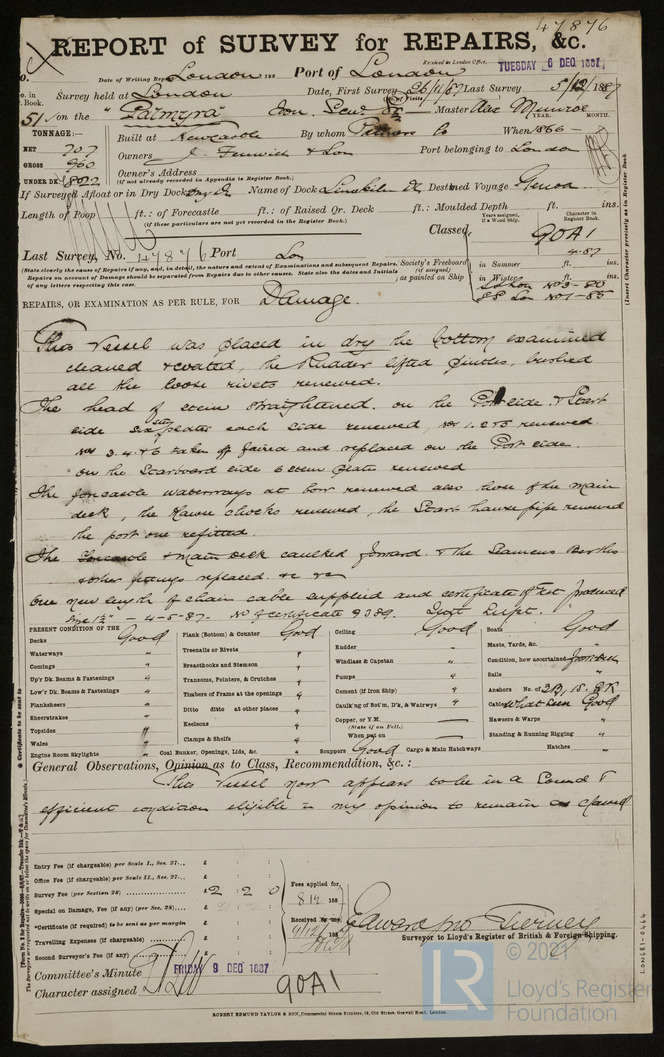 47876
REPORT of SURVEY for REPAIRS, &c.
Received in London Office, TUESDAY 6 DEC 1887
Date of Writing Report London 188 Port of London
No. in Book. Survey held at London Date, First Survey 26/11/87 Last Survey 5/12/1887
51 on the "Palmyra" Iron Scw. Master Alex Munroe
YEAR. MONTH.
TONNAGE:—
Built at Newcastle By whom Palmers Co When 1866 —
NET 707
GROSS 960
UNDER DK
Owners J. Fenwick & Son Port belonging to London
Owner's Address
(if not already recorded in Appendix to Register Book.)
If Surveyed Afloat or in Dry Dock Dry Dk Name of Dock Limekiln Dk Destined Voyage Genoa
Length of Poop ft.: of Forecastle ft.: of Raised Qr. Deck ft.: Moulded Depth ft. ins.
(if these particulars are not yet recorded in the Register Book.)
Years assigned, if a Wood Ship.
Character in Register Book.
Classed 90A1
4-87
Last Survey, No. 47876 Port Lon
(State clearly the cause of Repairs if any, and, in detail, the nature and extent of Examinations and subsequent Repairs.
Repairs on account of Damage should be separated from Repairs due to other causes. State also the dates and Initials
of any letters respecting this case.
Society's Freeboard (if assigned) as painted on Ship
in Summer ft. ins.
in Winter ft. ins.
SS Lon No 1-85
(Insert Character precisely as in Register Book)
REPAIRS, OR EXAMINATION AS PER RULE, FOR Damage.
This Vessel was placed in dry the bottom examined
cleaned & coated, the Rudder lifted pintles, bushed
all the loose rivets renewed.
The head of stem straightened. on the Port side & Starb
side six plates each side renewed, Nos 1. 2 & 5 renewed
Nos 3. 4 & 6 taken off faired and replaced on the Port side.
on the Starboard side 6 stem plates renewed
The forecastle waterways at bow renewed also those of the main
deck, the Hawse chocks renewed, the Starb hawse pipe renewed
the port one refitted.
The forecastle & main deck caulked forward & the Seamens Berths
& other fittings replaced. &c &c
One new length of chain cable supplied and certificate of test produced
— 4-5-87. No of certificate 9389.
PRESENT CONDITION OF THE
Decks Good
Waterways "
Comings "
Up'r Dk. Beams & Fastenings "
Low'r Dk. Beams & Fastenings "
Planksheers "
Sheerstrakes "
Topsides "
Wales "
Engine Room Skylights "
Plank (Bottom) & Counter Good
Treenails or Rivets "
Breasthooks and Stemson "
Transoms, Pointers, & Crutches "
Timbers of Frame at the openings "
Ditto ditto at other places "
Keelsons "
Clamps & Shelfs "
Coal Bunker, Openings, Lids, &c. "
Ceiling Good
Rudder "
Windlass & Capstan "
Pumps "
Cement (if Iron Ship) "
Caulk'ng of Bot'm, D'k, & Watrwys "
Copper, or Y.M.
(State if on Felt.)
When put on
Scuppers Good Cargo & Main Hatchways
Boats Good
Masts, Yards, &c. "
Condition, how ascertained from Deck
Sails "
Anchors No. of 3B, 1S. 2K
Cables what seen Good
Hawsers & Warps "
Standing & Running Rigging "
Hatches "
General Observations, Opinion as to Class, Recommendation, &c.:
This Vessel now appears to be in a Sound &
efficient condition eligible in my opinion to remain as classed
Entry Fee (if chargeable) per Scale I., Sec. 27... £ : :
Office Fee (if chargeable) per Scale II., Sec. 27... £ : :
Survey Fee (per Section 28) £ 2 2 0
Special on Damage, Fee (if any) (per Sec. 28) £ : :
*Certificate (if required) to be sent as per margin £ : :
Travelling Expenses (if chargeable) £ : :
Second Surveyor's Fee (if any) £ : :
Fees applied for, 8/12 188
Received by me, 9/12 188
Edward Jno Tierney
Surveyor to Lloyd's Register of British & Foreign Shipping.
Committee's Minute FRIDAY 9 DEC 1887
Character assigned 90A1
ROBERT EDMUND TAYLOR & SON, Commercial Steam Printers, 19, Old Street, Goswell Road, London.
* Certificate to be sent to
LON681-0464
© 2021
LR
Lloyd's Register
Foundation